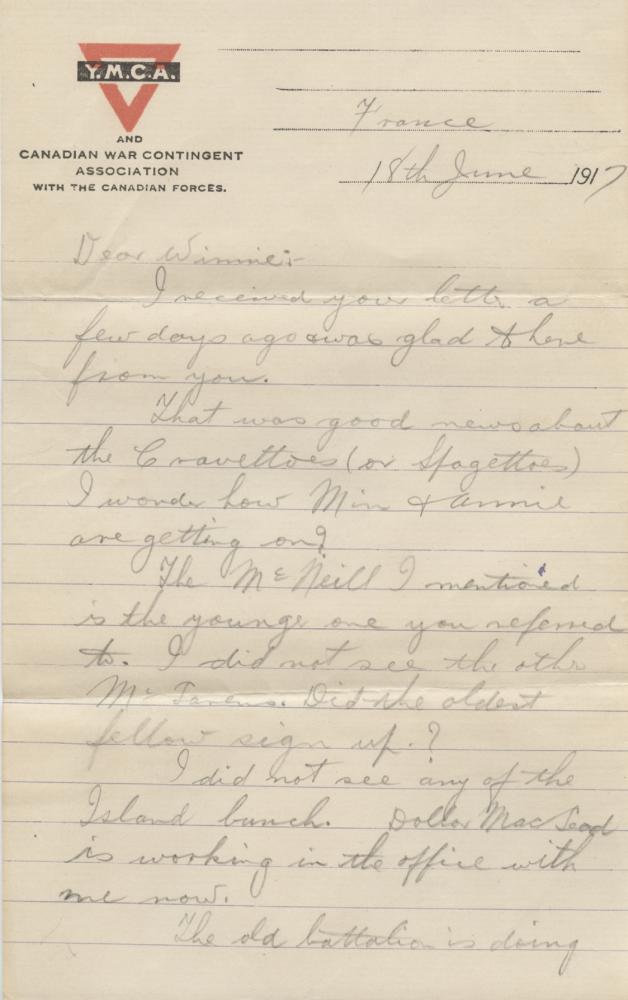 Y.M.C.A.
AND
CANADIAN WAR CONTINGENT
ASSOCIATION
WITH THE CANADIAN FORCES.
France
18th June 1917
Dear Winnie:-
I received your letter a
few days ago & was glad to here
from you.
That was good news about
the Cravettoes (or Spagettoes)
I wonder how Min & Annie
are getting on?
The McNeill I mentioned
is the younger one you referred
to. I did not see the other
Mc Did the oldest
fellow sign up.?
I did not see any of the
Island bunch. Dollar MacLeod
is working in the office with
me now.
The old battalion is doing